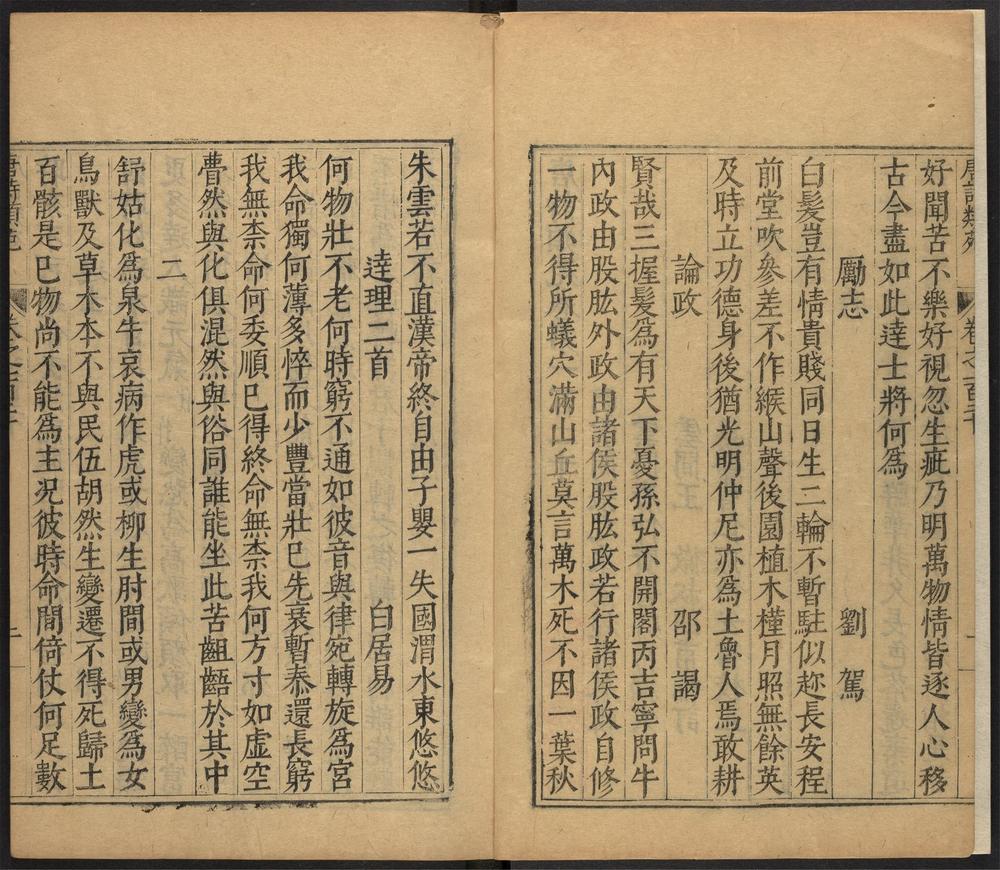 唐詩類苑 卷之一百二十 一
好聞苦不樂好視忽生疵乃明萬物情皆逐人心移
古今盡如此達士將何爲
厲志 劉駕
白髮豈有情貴賤同日生二輪不暫駐似趂長安程
前堂吹參差不作緱山聲後園植木槿月照無餘英
及時立功德身後猶光明仲尼亦爲土魯人焉敢耕
論政 邵謁
賢哉三握髮爲有天下憂孫弘不開閣丙吉寧問牛
內政由股肱外政由諸侯股肱政若行諸侯政自修
一物不得所蟻穴滿山丘莫言萬木死不因一葉秋
朱雲若不直漢帝終自由子嬰一失國渭水東悠悠
達理二首 白居易
何物壯不老何時窮不通如彼音與律宛轉旋爲宮
我命獨何薄多悴而少豐當壯巳先衰暫泰還長窮
我無柰命何委順巳得終命無柰我何方寸如虛空
瞢然與化俱混然與俗同誰能坐此苦齟齬於其中
二
舒姑化爲泉牛哀病作虎或柳生肘間或男變爲女
鳥獸及草木本不與民伍胡然生變遷不得死歸土
百骸是巳物尚不能爲主況彼時命間倚仗何足數